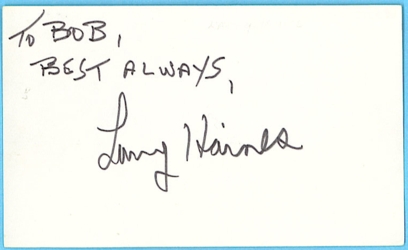 To BOB,
BEST ALWAYS,
Larry Haines